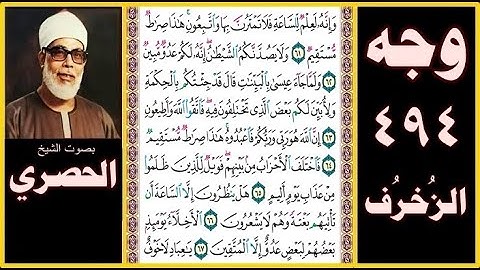 وجه
٤٩٤
الزُخرُف
وَإِنَّهُۥ لَعِلْمٌ لِّلسَّاعَةِ فَلَا تَمْتَرُنَّ بِهَا وَٱتَّبِعُونِ ۚ هَٰذَا صِرَٰطٌ
مُّسْتَقِيمٌ ٦١ وَلَا يَصُدَّنَّكُمُ ٱلشَّيْطَٰنُ ۖ إِنَّهُۥ لَكُمْ عَدُوٌّ مُّبِينٌ
٦٢ وَلَمَّا جَآءَ عِيسَىٰ بِٱلْبَيِّنَٰتِ قَالَ قَدْ جِئْتُكُم بِٱلْحِكْمَةِ
وَلِأُبَيِّنَ لَكُم بَعْضَ ٱلَّذِى تَخْتَلِفُونَ فِيهِ ۖ فَٱتَّقُوا۟ ٱللَّهَ وَأَطِيعُونِ
٦٣ إِنَّ ٱللَّهَ هُوَ رَبِّى وَرَبُّكُمْ فَٱعْبُدُوهُ ۚ هَٰذَا صِرَٰطٌ مُّسْتَقِيمٌ
٦٤ فَٱخْتَلَفَ ٱلْأَحْزَابُ مِنۢ بَيْنِهِمْ ۖ فَوَيْلٌ لِّلَّذِينَ ظَلَمُوا۟
مِنْ عَذَابِ يَوْمٍ أَلِيمٍ ٦٥ هَلْ يَنظُرُونَ إِلَّا ٱلسَّاعَةَ أَن
تَأْتِيَهُم بَغْتَةً وَهُمْ لَا يَشْعُرُونَ ٦٦ ٱلْأَخِلَّآءُ يَوْمَئِذٍۭ
بَعْضُهُمْ لِبَعْضٍ عَدُوٌّ إِلَّا ٱلْمُتَّقِينَ ٦٧ يَٰعِبَادِ لَا خَوْفٌ
بصوت الشيخ
الحصري